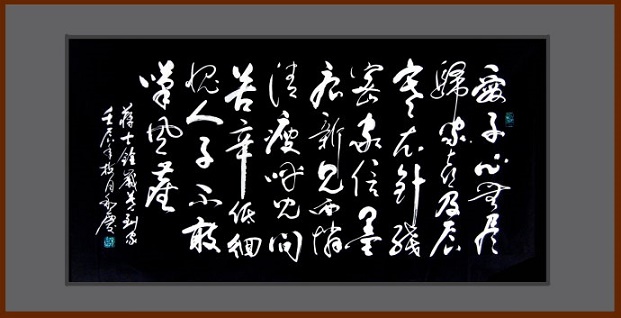 愛子心無尽
歸家喜及辰
寒衣針线
密家信墨
痕新見面憐
清瘦呼兒問
苦辛低徊
愧人子不敢
嘆風塵
蔣士銓歲暮到家
壬辰年梅月慶